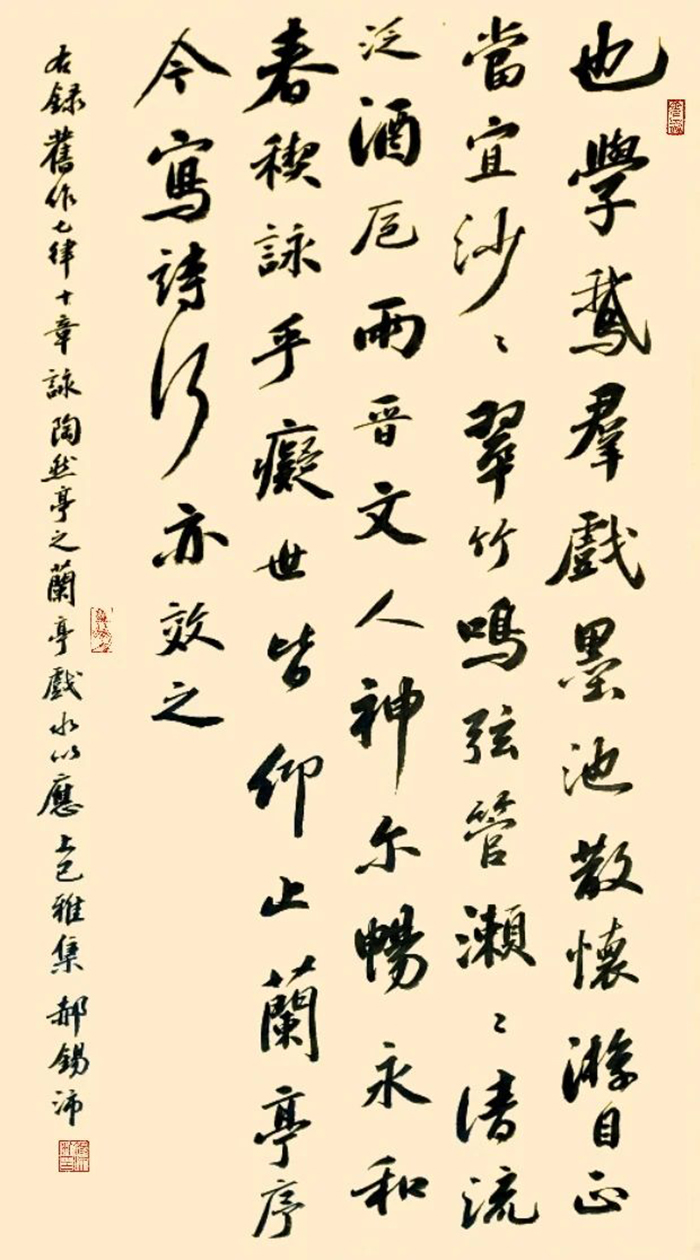 也學鵝羣戲墨池散懷游目正
當宜沙〻翠竹鳴弦管瀨〻清流
泛酒卮兩晉文人神尔暢永和
春禊詠乎癡世皆仰止蘭亭序
今寫詩行亦效之
右録舊作七律十章詠陶然亭之蘭亭戲水以應上巳雅集 郝錫沛